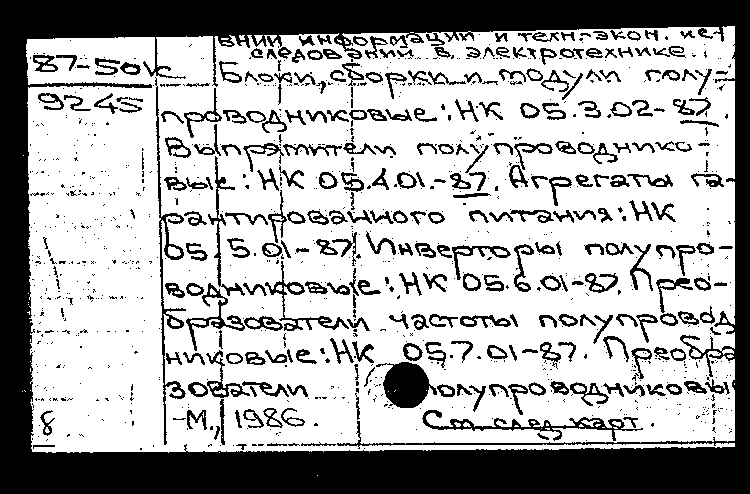 ВНИИ информации и техн.-экон. исс
следований в электротехнике.
87-50к Блоки, сборки и модули полу-
9245 проводниковые: НК 05.3.02-87.
Выпрямители полупроводнико-
вые: НК 05.4.01.-87. Агрегаты га-
рантированного питания: НК
05.5.01-87. Инверторы полупро-
водниковые: НК 05.6.01-87. Прео-
бразователи частоты полупровод
никовые: НК 05.7.01-87. Преобра
зователи полупроводниковые
8 -М., 1986. См. след. карт.